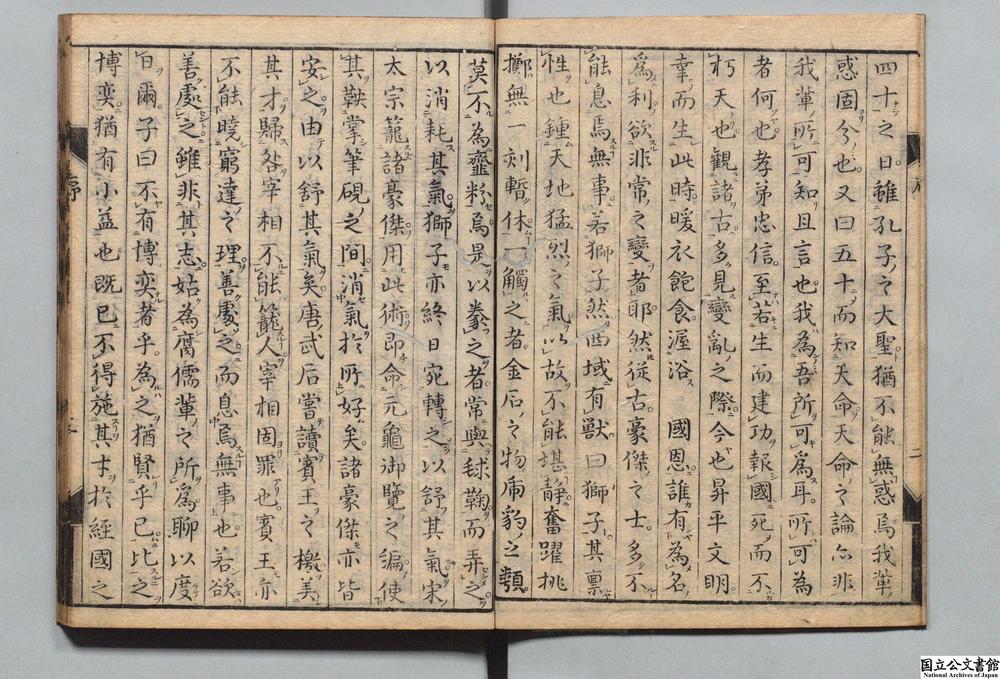 四十之日雖孔子之大聖猶不能無惑焉我輩
惑固分也又曰五十而知天命天命之論亦非
我輩所可知且言也我為吾所可為耳所可為
者何也孝弟忠信至若生而建功報國死而不
朽天也觀諸古多見變亂之際今也昇平文明
幸而生此時暖衣飽食渥浴 國恩誰有為名
為利欲非常之變者耶然從古豪傑之士多不
能息焉無事若獅子然西域有獸曰獅子其稟
性也鍾天地猛烈之氣以故不能堪静奮躍挑
擲無一刻暫休一觸之者金石之物虎豹之類
莫不為虀粉焉是以豢之者常與毬鞠而弄之
以消耗其氣獅子亦終日宛轉之以舒其氣宋
太宗籠諸豪傑用此術即命元龜御覽之編使
其鞅掌筆硯之間消氣於所好矣諸豪傑亦皆
安之由以舒其氣矣唐武后嘗讀賓王之檄美
其才歸咎宰相不能籠人宰相固罪也賓王亦
不能曉窮達之理善處之而息焉無事也若欲
善處之雖非其志姑為腐儒輩之所為聊以度
日爾子曰不有博奕者乎為之猶賢乎已比之
博奕猶有小益也既已不得施其才於經國之
序
二
序
三
国立公文書館
National Archives of Japan